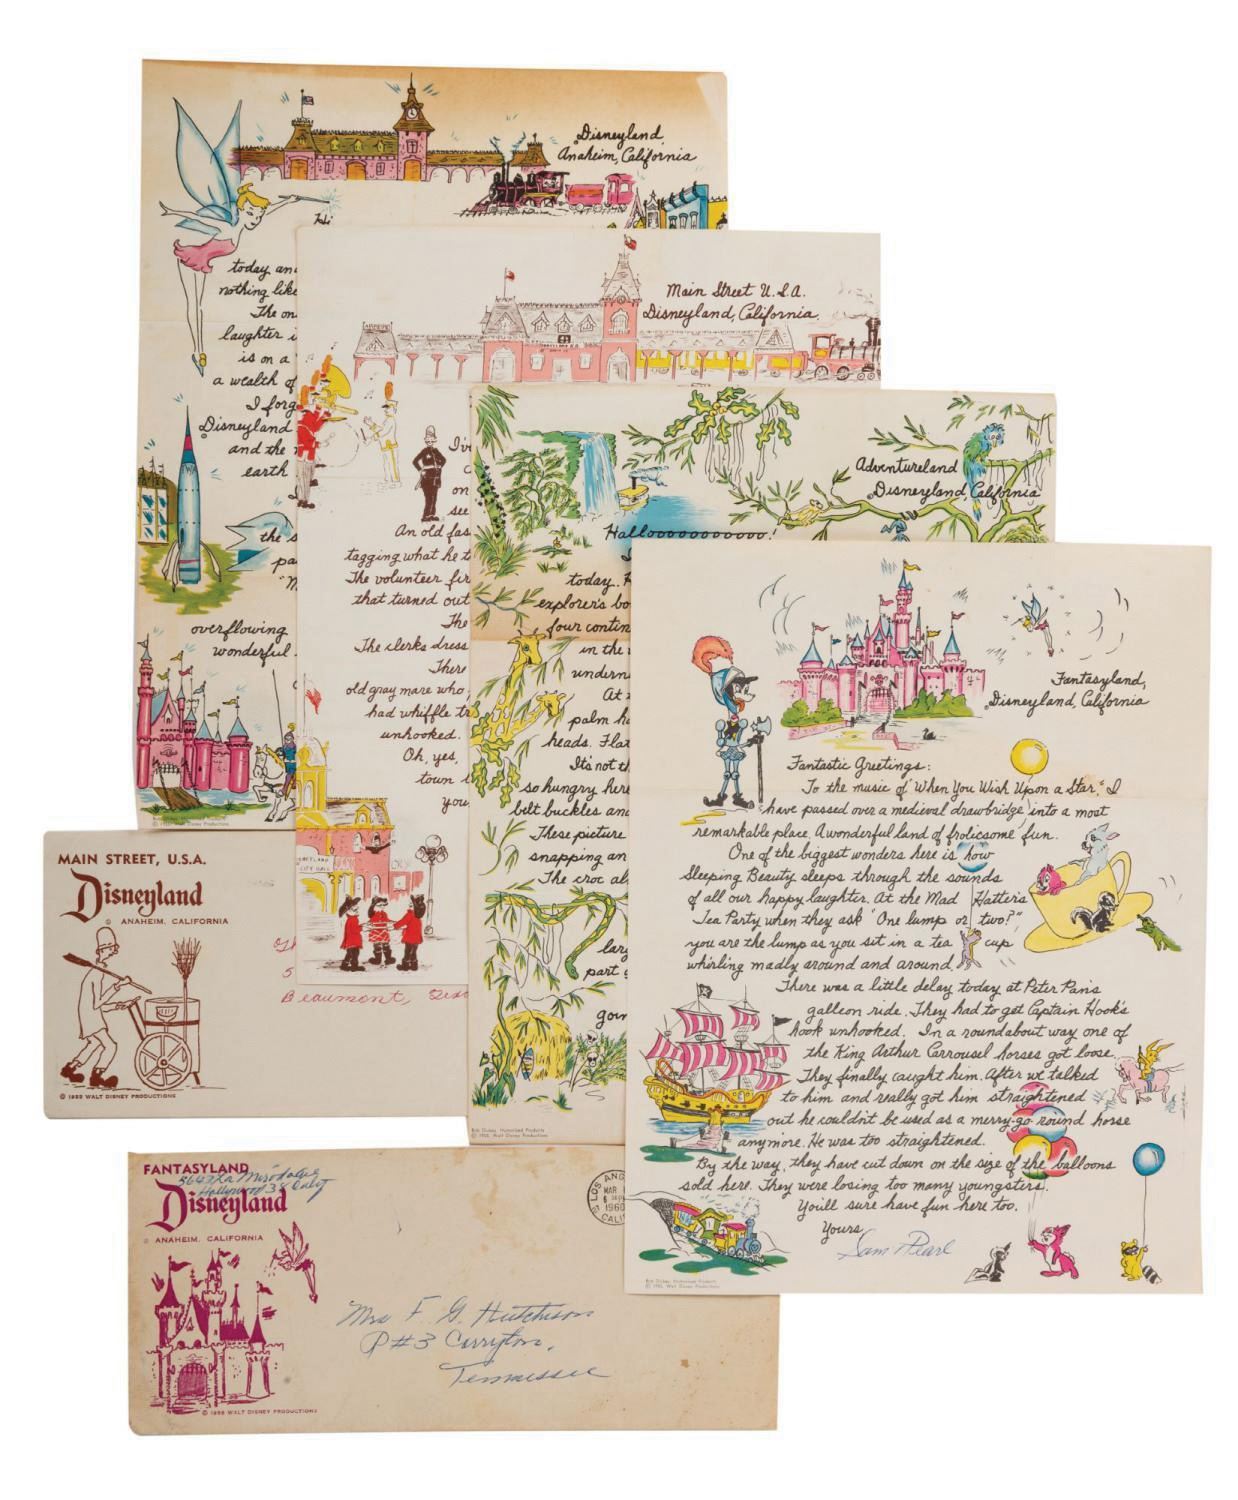 Disneyland,
Anaheim, California
Hi
today an
nothing like
The on
laughter i
is on a
a wealth of
I forg
Disneyland
and the
earth
the s
pa
"M
overflowing
wonderful
Main Street U.S.A.
Disneyland, California
I'v
on
see
An old fas
tagging what he t
The volunteer fir
that turned out
The
The clerks dress
There
old gray mare who
had whiffle tr
unhooked.
Oh, yes,
town
you
CITY HALL
Adventureland
Disneyland, California
Halloooooooooooo!
today.
explorer's bo
four contin
in the
undern
At
palm ha
heads. Flat
It's not th
so hungry here
belt buckles and
These picture
snapping an
The croc al
larg
part
goin
Bob Dickey, Humorized Products
© 1955, Walt Disney Productions
Fantasyland,
Disneyland, California
Fantastic Greetings:
To the music of "When You Wish Upon a Star," I
have passed over a medieval drawbridge into a most
remarkable place. A wonderful land of frolicsome fun.
One of the biggest wonders here is how
Sleeping Beauty sleeps through the sounds
of all our happy laughter. At the Mad Hatter's
Tea Party when they ask "One lump or two?",
you are the lump as you sit in a tea cup
whirling madly around and around.
There was a little delay today at Peter Pan's
galleon ride. They had to get Captain Hook's
hook unhooked. In a roundabout way one of
the King Arthur Carrousel horses got loose.
They finally caught him. After we talked
to him and really got him straightened
out he couldn't be used as a merry-go-round horse
anymore. He was too straightened.
By the way, they have cut down on the size of the balloons
sold here. They were losing too many youngsters.
You'll sure have fun here too.
Yours,
Sam Pearl
Bob Dickey, Humorized Products
© 1955, Walt Disney Productions
MAIN STREET, U.S.A.
Disneyland
© ANAHEIM, CALIFORNIA
5
Beaumont, Texa
© 1955 WALT DISNEY PRODUCTIONS
FANTASYLAND
5643 La Mirada Ave
Hollywood 38 Calif
Disneyland
© ANAHEIM, CALIFORNIA
LOS ANG
MAR
PM
1960
CALI
Mrs F. G. Hutchison
R#3 Corryton,
Tennessee
© 1955 WALT DISNEY PRODUCTIONS